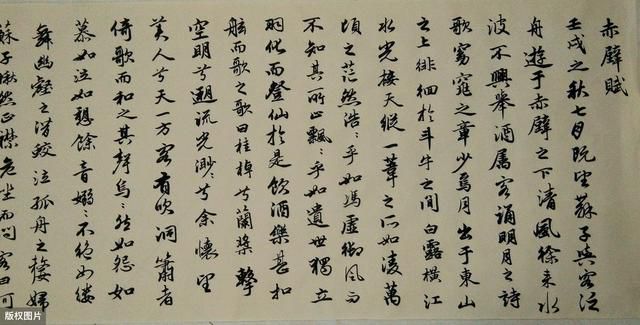 赤壁賦
壬戌之秋七月既望蘇子與客泛
舟遊于赤壁之下清風徐来水
波不興舉酒屬客誦明月之詩
歌窈窕之章少焉月出于東山
之上徘徊於斗牛之間白露橫江
水光接天縱一葦之所如凌萬
頃之茫然浩〻乎如馮虛御風而
不知其所止飄〻乎如遺世獨立
羽化而登仙於是飲酒樂甚扣
舷而歌之歌曰桂棹兮蘭槳擊
空明兮遡流光渺〻兮余懷望
美人兮天一方客有吹洞簫者
倚歌而和之其聲烏〻然如怨如
慕如泣如愬餘音嫋〻不絕如縷
舞幽壑之潛蛟泣孤舟之嫠婦
蘇子愀然正襟危坐而問客曰
版权图片